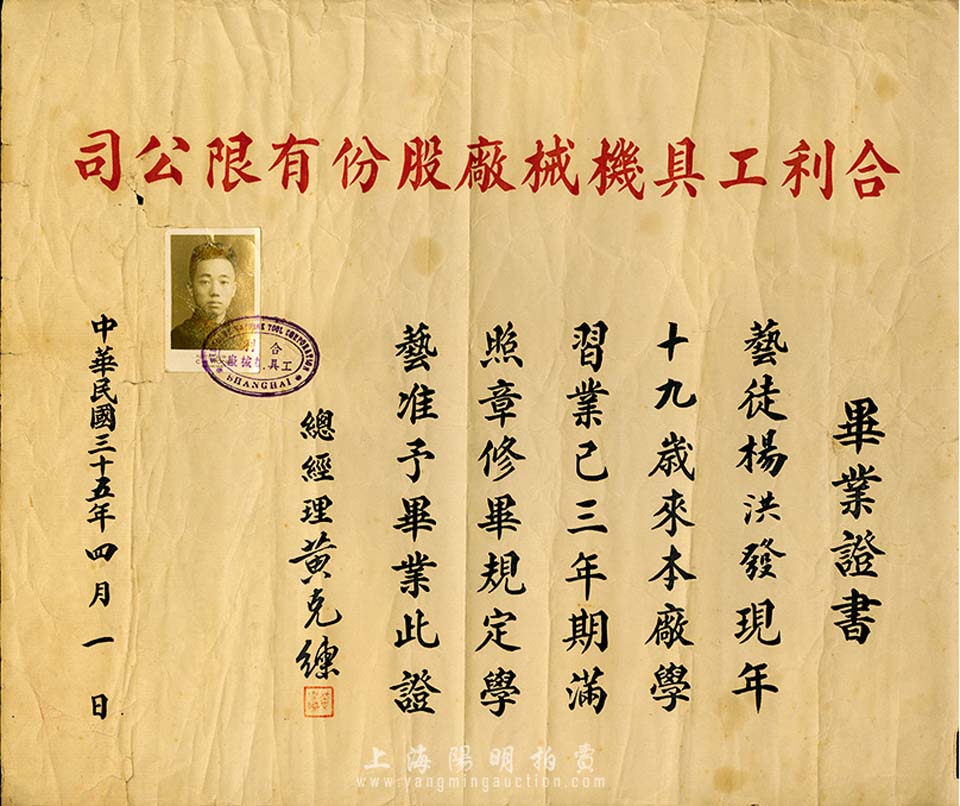 合利工具機械廠股份有限公司
畢業證書
藝徒楊洪發現年
十九歲來本廠學
習業已三年期滿
照章修畢規定學
藝准予畢業此證
總經理黃克練
中華民國三十五年四月一日
TOOL CORPORATION
合利
工具機械廠
SHANGHAI
上海陽明拍賣
www.yangmingauction.com